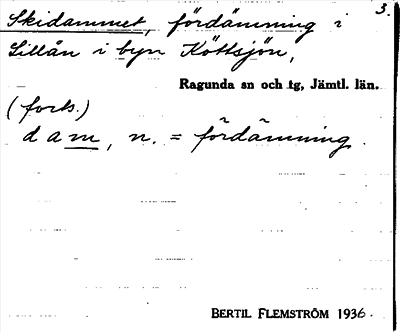 3.
Skidammet, fördämning i
Lillån i byn Köttsjön,
Ragunda sn och tg, Jämtl. län.
(forts.)
dam, n. = fördämning.
BERTIL FLEMSTRÖM 1936.